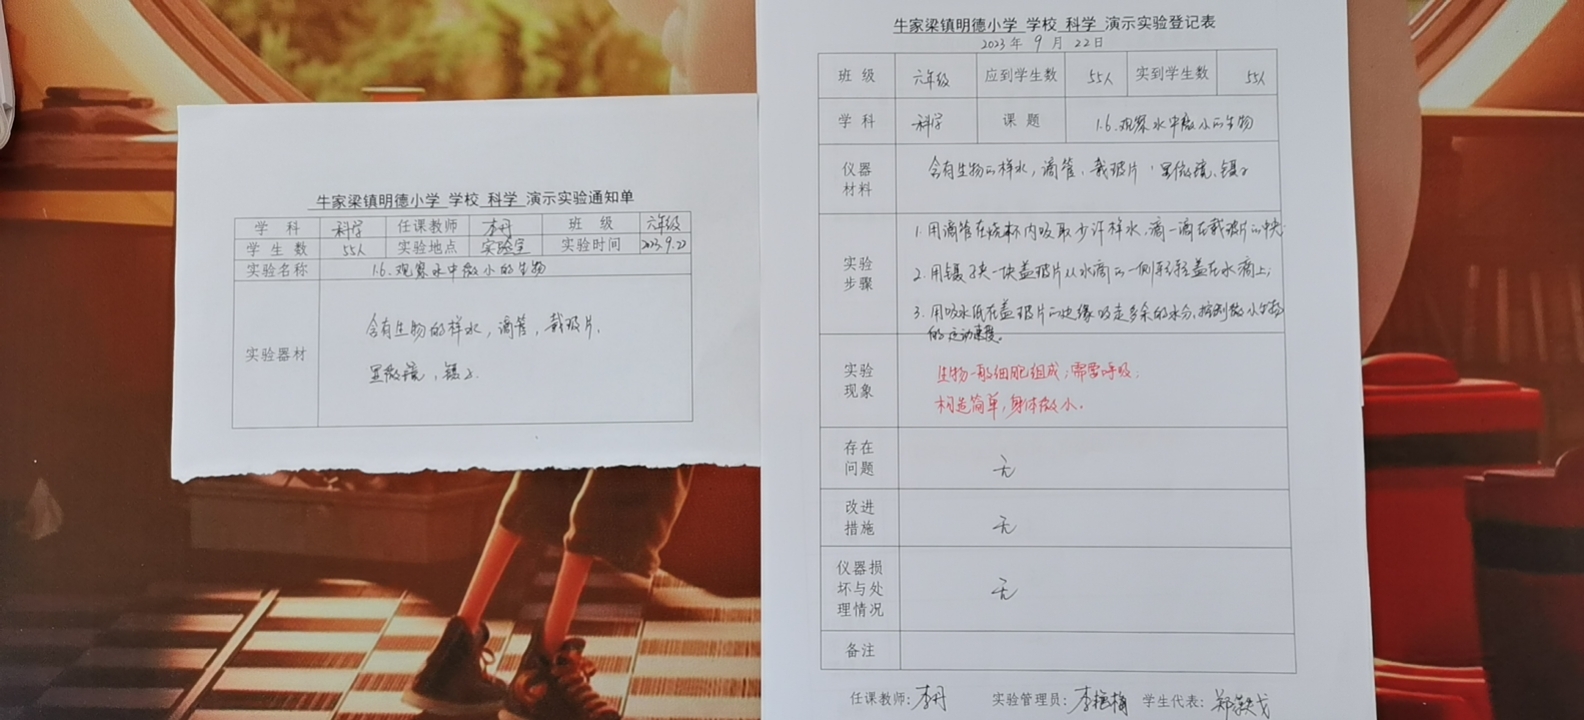 牛家梁镇明德小学 学校 科学 演示实验通知单
学 科 科学 任课教师 李丹 班 级 六年级
学 生 数 55人 实验地点 实验室 实验时间 2023.9.22
实验名称 1.6.观察水中微小的生物
实验器材 含有生物的样水,滴管,载玻片,
显微镜,镊子.
牛家梁镇明德小学 学校 科学 演示实验登记表
2023 年 9 月 22 日
班 级 六年级 应到学生数 55人 实到学生数 55人
学 科 科学 课 题 1.6.观察水中微小的生物
仪器
材料
含有生物的样水,滴管、载玻片,显微镜、镊子
实验
步骤
1.用滴管在烧杯内吸取少许样水,滴一滴在载玻片的中央
2.用镊子夹一块盖玻片从水滴的一侧轻轻盖在水滴上;
3.用吸水纸在盖玻片的边缘吸走多余的水分,控制微小生物
的运动速度。
实验
现象
生物一般细胞组成,需要呼吸,
构造简单,身体微小.
存在
问题
无
改进
措施
无
仪器损
坏与处
理情况
无
备注
任课教师:李丹 实验管理员:李 学生代表:郑